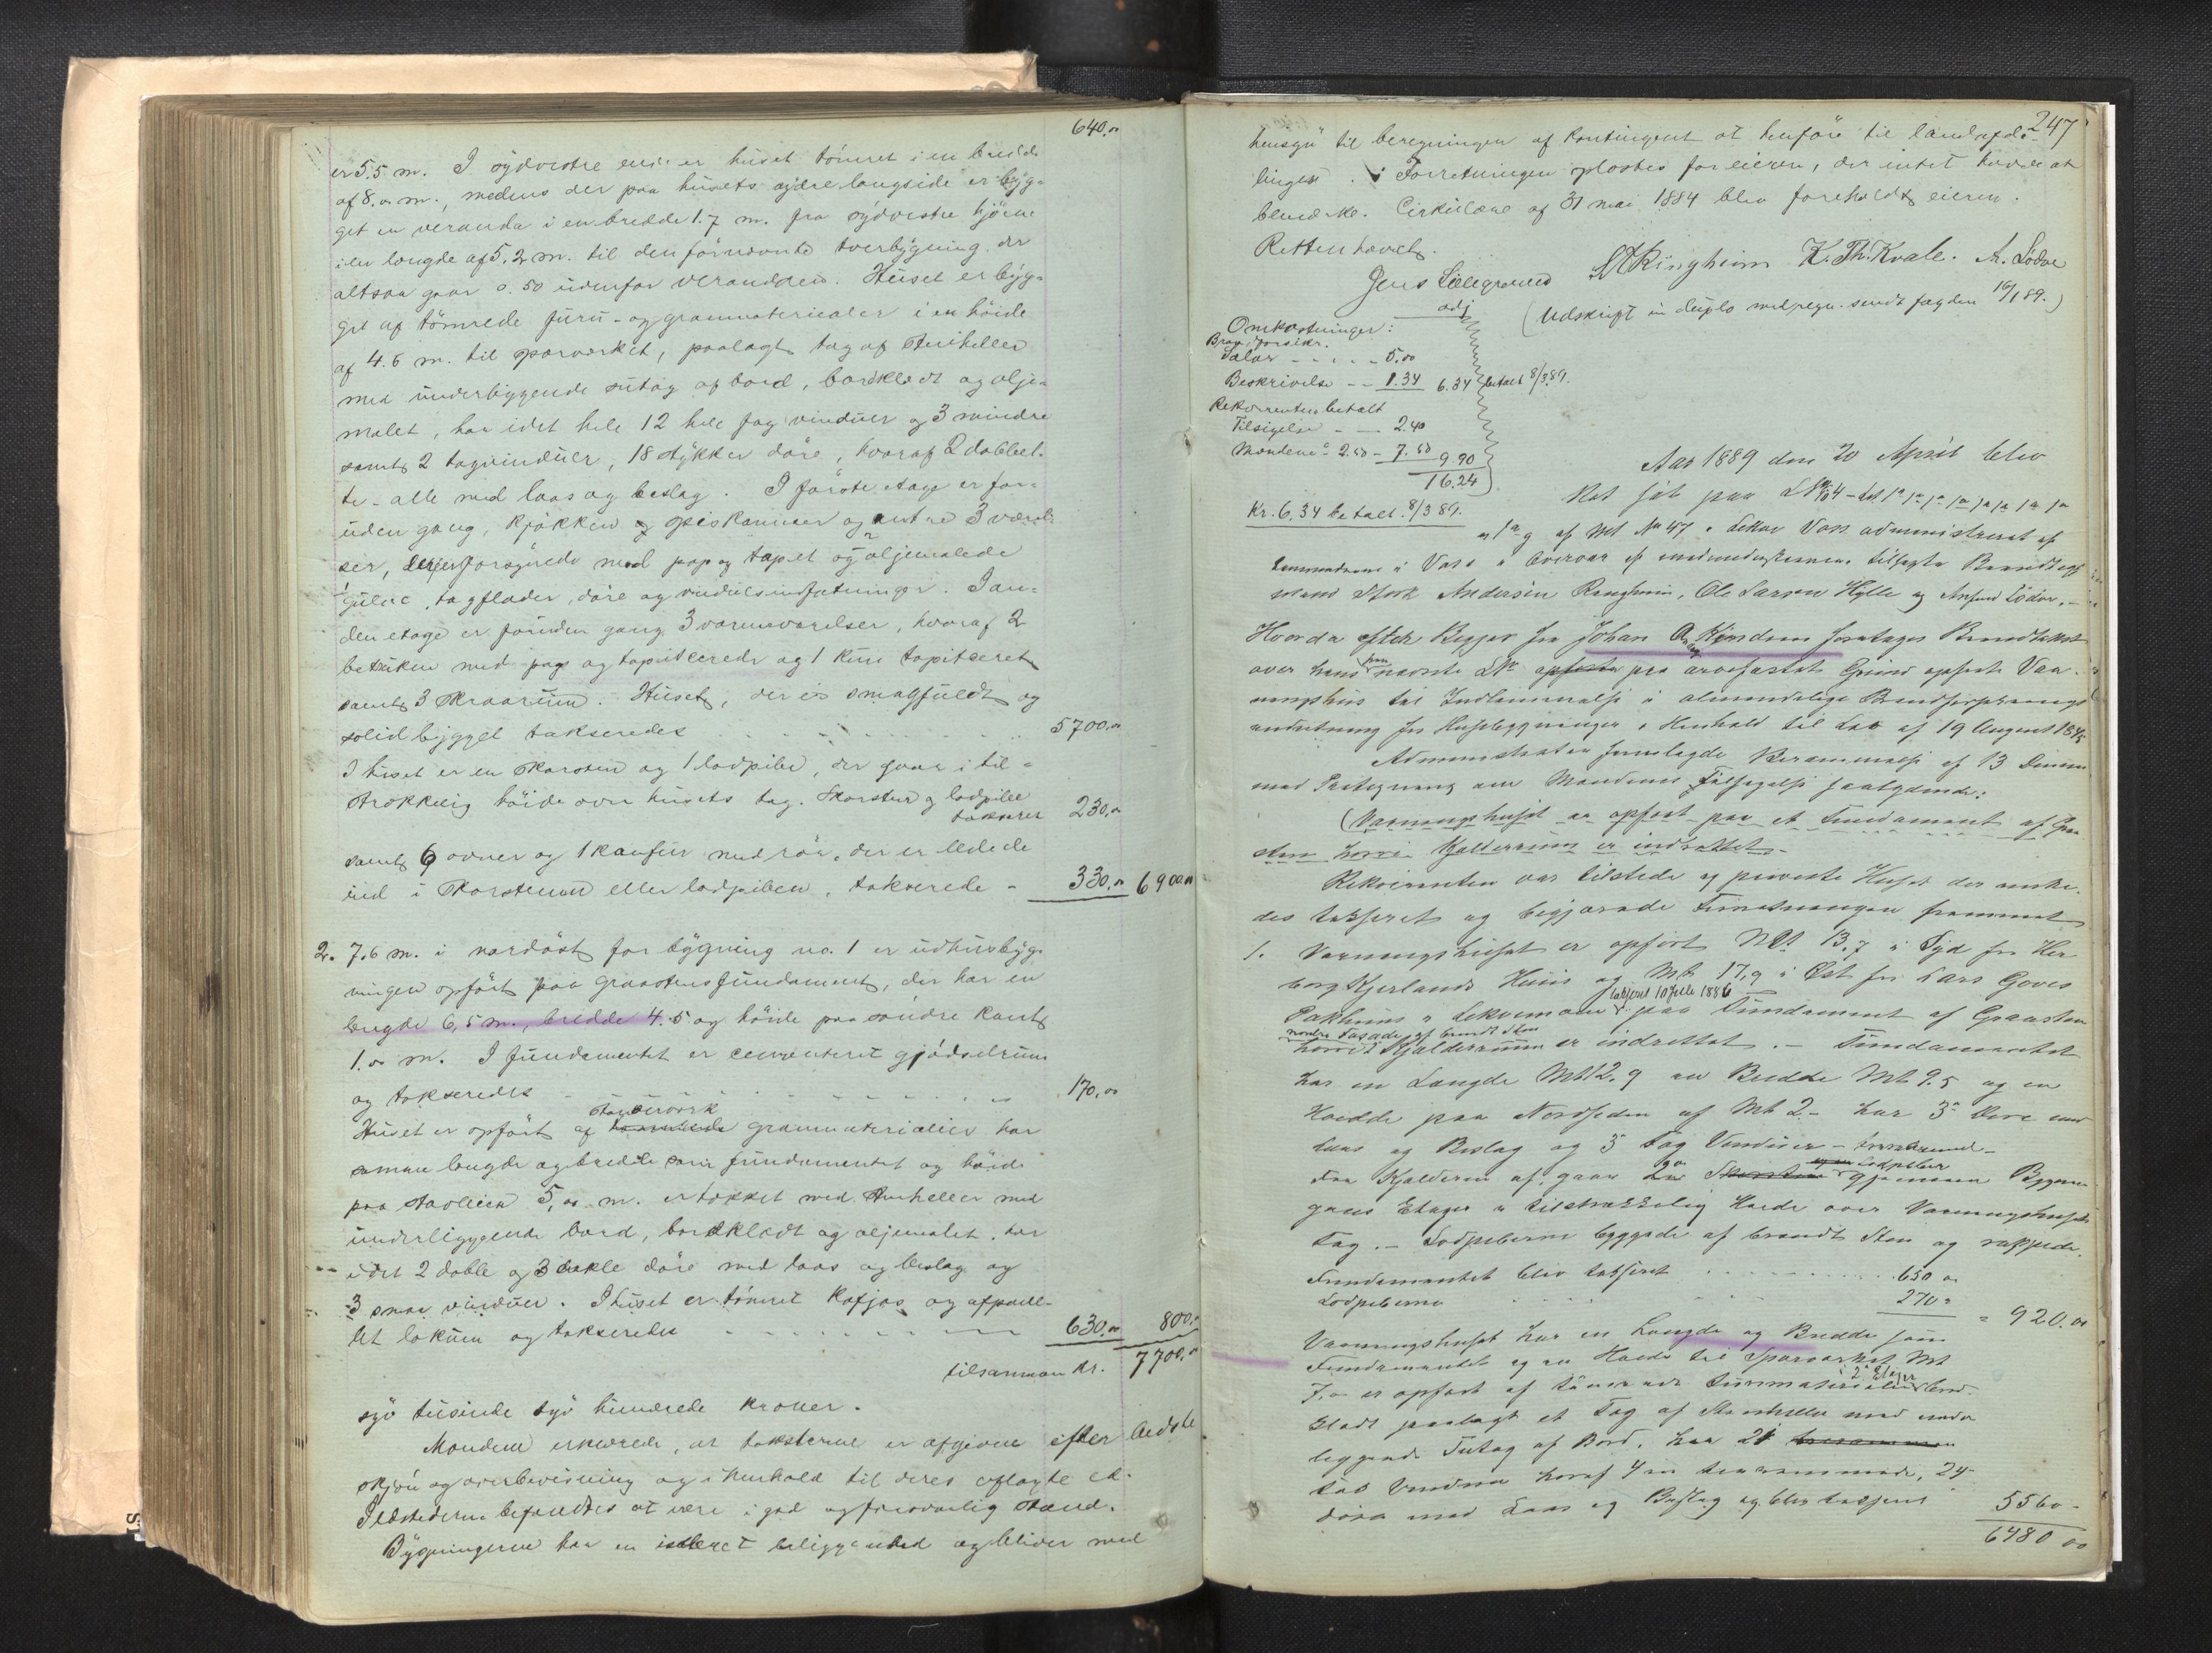 640,00
er 5.5 m. I sydvestre ende er huset tömret i en bredde
af 8.0 m., medens der paa husets sydre langside er byg-
get en veranda i en bredde 1.7 m. fra sydvestre hjörne
i en længde af 5.2 m. til den förnævnte tverbygning der
altsaa gaar 0.50 udenfor verandaen. Huset er byg-
get af tömrede furu- og granmaterialer i en höide
af 4.6 m. til sparverket, paalagt tag af stenheller
med underliggende sutag af bord, bordklædt og olje-
malet, har i det hele 12 hele fag vinduer og 3 mindre
samt 2 tagvinduer, 18 stykker döre, hvoraf 2 dobbel-
te - alle med laas og beslag. I förste etage er for-
uden gang, kjökken og spiskammer og andre 3 værel-
ser, forsynede med pap og tapet og oljemalede
gulve, tagflader, döre og vinduesindfatninger. I an-
den etage er foruden gang 3 varmeværelser, hvoraf 2
betrukne med pap og tapitserede og 1 kun tapitseret
samt 3 skraarum. Huset, der er smagfuldt og
solid bygget takseredes 5700,00
I huset er en skorsten og 1 lodpibe, der gaar i til-
strækkelig höide over husets tag. Skorsten og lodpibe
takseres 230,00
samt 6 ovner og 1 komfur med rör, der er ledede
ind i skorstenen eller lodpiben, takserede - 330,00 6900,00
2. 7.6 m. i nordöst for bygning no. 1 er udhusbyg-
ningen opfört paa graastensfundament, der har en
længde 6,5 m., bredde 4.5 og höide paa söndre kant
1.00 m. I fundamentet er cementeret gjödselrum
og takseredes 170,00
Stavværk
Huset er opfört af granmaterialier har
samme længde og bredde som fundamentet og höide
paa stavlien 5,00 m. er tækket med stenheller med
underliggende bord, bordklædt og oljemalet, har
i det 2 doble og 3 enkle döre med laas og beslag og
3 smaa vinduer. I huset er tömret kofjös og afpanel-
let lokum og takseredes 630,00 800,00
tilsammen Kr. 7700,00
syv tusinde syv hundrede kroner.
Mændene erklærede, at taksterne er afgivne efter bedste
skjön og overbevisning og i henhold til deres aflagte ed.
Ildstederne befandtes at være i god og forsvarlig stand.
Bygningerne har en isoleret beliggenhed og bliver med
247
hensyn til beregningen af kontingent at henföre til landafde-
lingen. Forretningen oplæstes for eieren, der intet havde at
bemærke. Cirkulære af 31 mai 1884 blev foreholdt eieren.
Retten hævet.
Jens Lillegraven S A Ringheim K. Th. Kvale. A. Lödve
adj
(Udskrift in duplo med regn. sendt fogden 16/1 89.)
Omkostninger:
Brandforsikr.
Salær - - - - - 5.00
Beskrivelse - - 1.34 6.34 betalt 8/3 89.
Rekvirenten betalt
Tilsigelse - - 2.40
Mændene á 2.50 - 7.50 9.90
16.24
Kr. 6.34 betalt 8/3 89.
Aar 1889 den 20 April blev
Ret sat paa
af Mt No 47 Lekve Voss administreret af
Lensmanden i Voss i Overvær af medundertegnede tilsagte Brandtaxt
Andersen Ringheim, Ole Larsen Hylle og Anfind Lödve. -
Hvorda efter Begjær fra Johan foretages Brandtakst
over hans nævnte LNo paa arvefæstet Grund opförte Vaa-
ningshus til Indlemmelse i almindelige Brandforsikrings
indretning for Husbygninger i Henhold til Lov af 19 August 1845
Administrator fremlagde Berammelse af 13 Dennes
med Paategning om Mændenes Tilsigelse saalydende:
(Vaaningshuset er opfört paa et Fundament af Graa
sten hvori Kjælderrum er indrettet. -
Rekvirenten var tilstede og paaviste Huset der önske-
des takseret og begjærede Forretningen fremmet
1. Vaaningshuset er opfört Mt 13,7 i Syd fra Her
borg Kjerlands Huus og Mt 17,9 i Öst fra Lars Gjores
taxeret 10 Juli 1886
Pakhuus i Lekvemoen paa Fundament af Graasten
nordre Fasade af brændt Sten
hvori Kjælderrum er indrettet. - Fundamentet
har en Længde Mt 12.9 en Bredde Mt 9.5 og en
Hoide paa Nordsiden af Mt 2.- har 3 Döre med
Laas og Beslag og 3 Fag Vinduer -
Fra Kjælderen af gaar Lodpiber gjennem Bygnin
gens Etager i tilstrækkelig Höide over Vaaningshusets
Tag. - Lodpiberne byggede af brændt Sten og rappede.
Fundamentet blev takseret 650 00
Lodpiberne 270 = = 920.00
Vaaningshuset har en Længde og Bredde som
Fundamentet og en Höide til Sparværket Mt
i 2 Etager
7.0 er opfört af tömrede Furumaterialier bord-
klædt paalagt et Tag af Stenheller med under
liggende Sutag af Bord, har 21
Fag Vinduer hvoraf 4 24
döre med Laas og Beslag og blev takseret 5560 -
6480 00